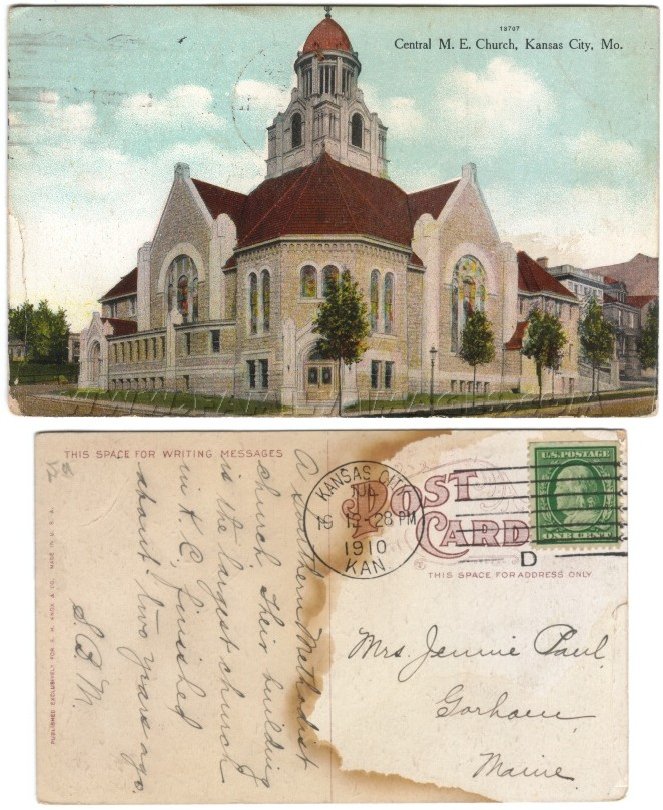 18707
Central M. E. Church, Kansas City, Mo.
THIS SPACE FOR WRITING MESSAGES
A Southern Methodist
church. This building
is the largest church
in K.C. finished
about two years ago.
S.P.M.
PUBLISHED EXCLUSIVELY FOR S. H. KNOX & CO. MADE IN U. S. A.
POST
CARD
KANSAS CITY
JUL
19 12-28 PM
1910
KAN
D
U.S. POSTAGE
ONE CENT
THIS SPACE FOR ADDRESS ONLY
Mrs. Jennie Paul.
Gorham
Maine